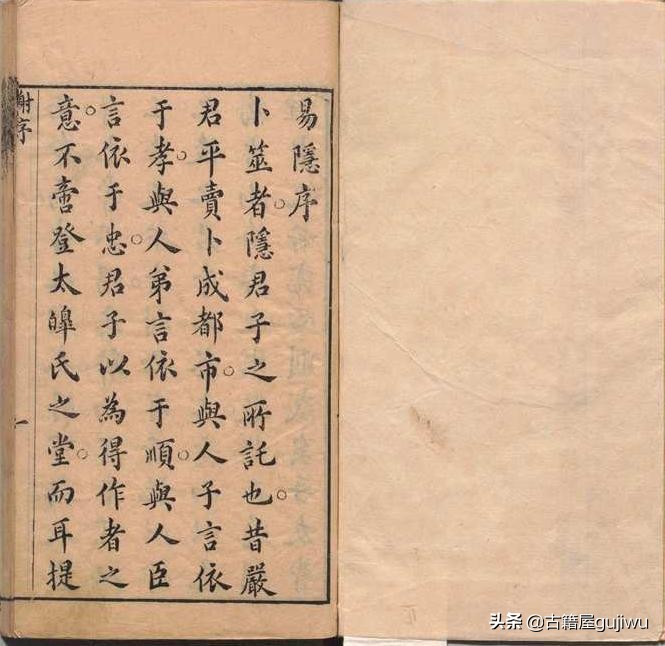 易隱序
卜筮者。隱君子之所託也。昔嚴
君平賣卜成都市。與人子言依
于孝。與人弟言依于順。與人臣
言依于忠。君子以為得作者之
意。不啻登太皞氏之堂。而耳提
謝序
一
头条 @古籍屋gujiwu